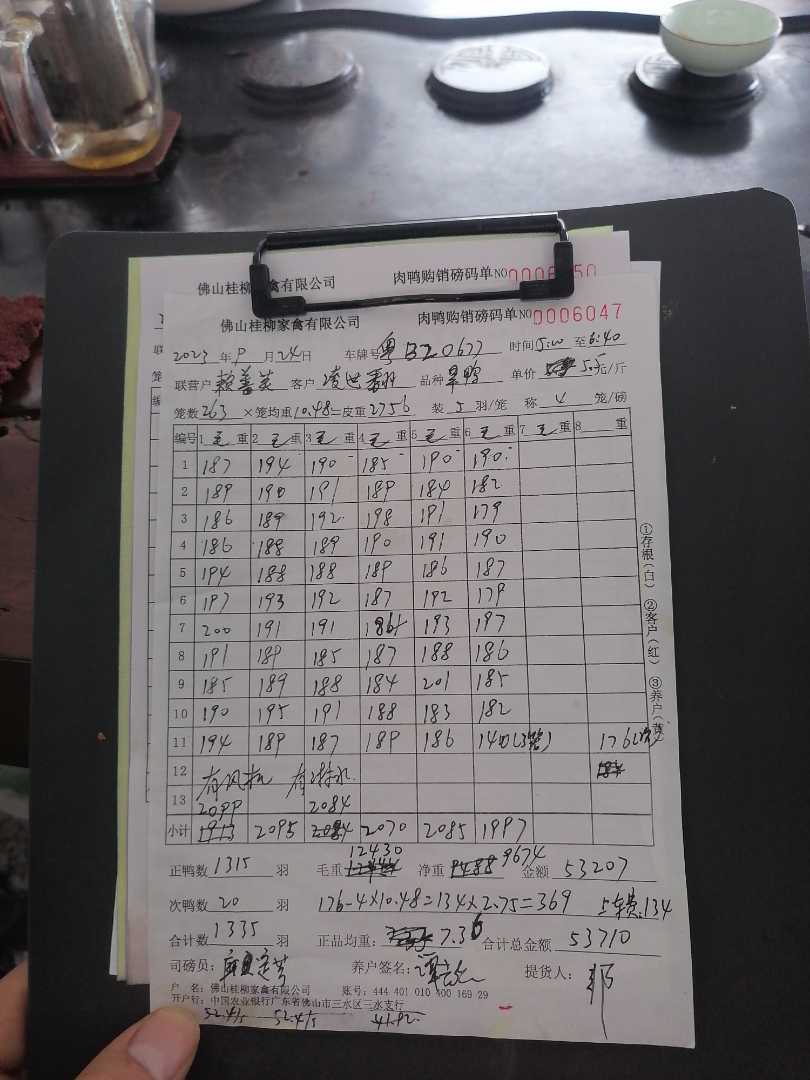 佛山桂柳家禽有限公司 肉鸭购销磅码单NO
佛山桂柳家禽有限公司 肉鸭购销磅码单NO 0006047
2023年9月24日 车牌号粤B20677 时间5:00至6:40
联营户 客户 品种 单价 5.5元/斤
笼数263×笼均重10.48=皮重2756 装5羽/笼 称4笼/磅
编号 1毛重 2毛重 3毛重 4毛重 5毛重 6毛重 7毛重 8重
1 187 194 190 185 190 190
2 189 190 191 189 184 182
3 186 189 192 198 191 179
4 186 188 189 190 191 190
5 194 188 188 189 186 187
6 197 193 192 187 192 179
7 200 191 191 186 193 197
8 191 189 185 187 188 186
9 185 189 188 184 201 185
10 190 195 191 188 183 182
11 194 189 187 189 186 140(3笼) 176(次)
12 有风机 有
13 2099 2084
小计 2095 2070 2085 1997
正鸭数1315羽 毛重12430 净重9674 金额53207
次鸭数20羽 176-4×10.48=134×2.75=369 134
合计数1335羽 正品均重:7.36 合计总金额53710
司磅员: 养户签名: 提货人:
户 名:佛山桂柳家禽有限公司 账号:444 401 010 400 169 29
开户行:中国农业银行广东省佛山市三水区三水支行
52.4/5 52.4/5 41.92
①存根(白) ②客户(红) ③养户(黄)